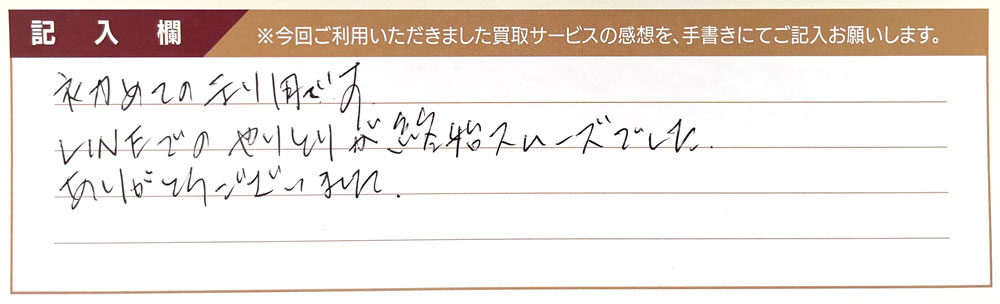 記入欄
※今回ご利用いただきました買取サービスの感想を、手書きにてご記入お願いします。
初めての利用です
LINEでのやりとりが終始スムーズでした.
ありがとうございました.